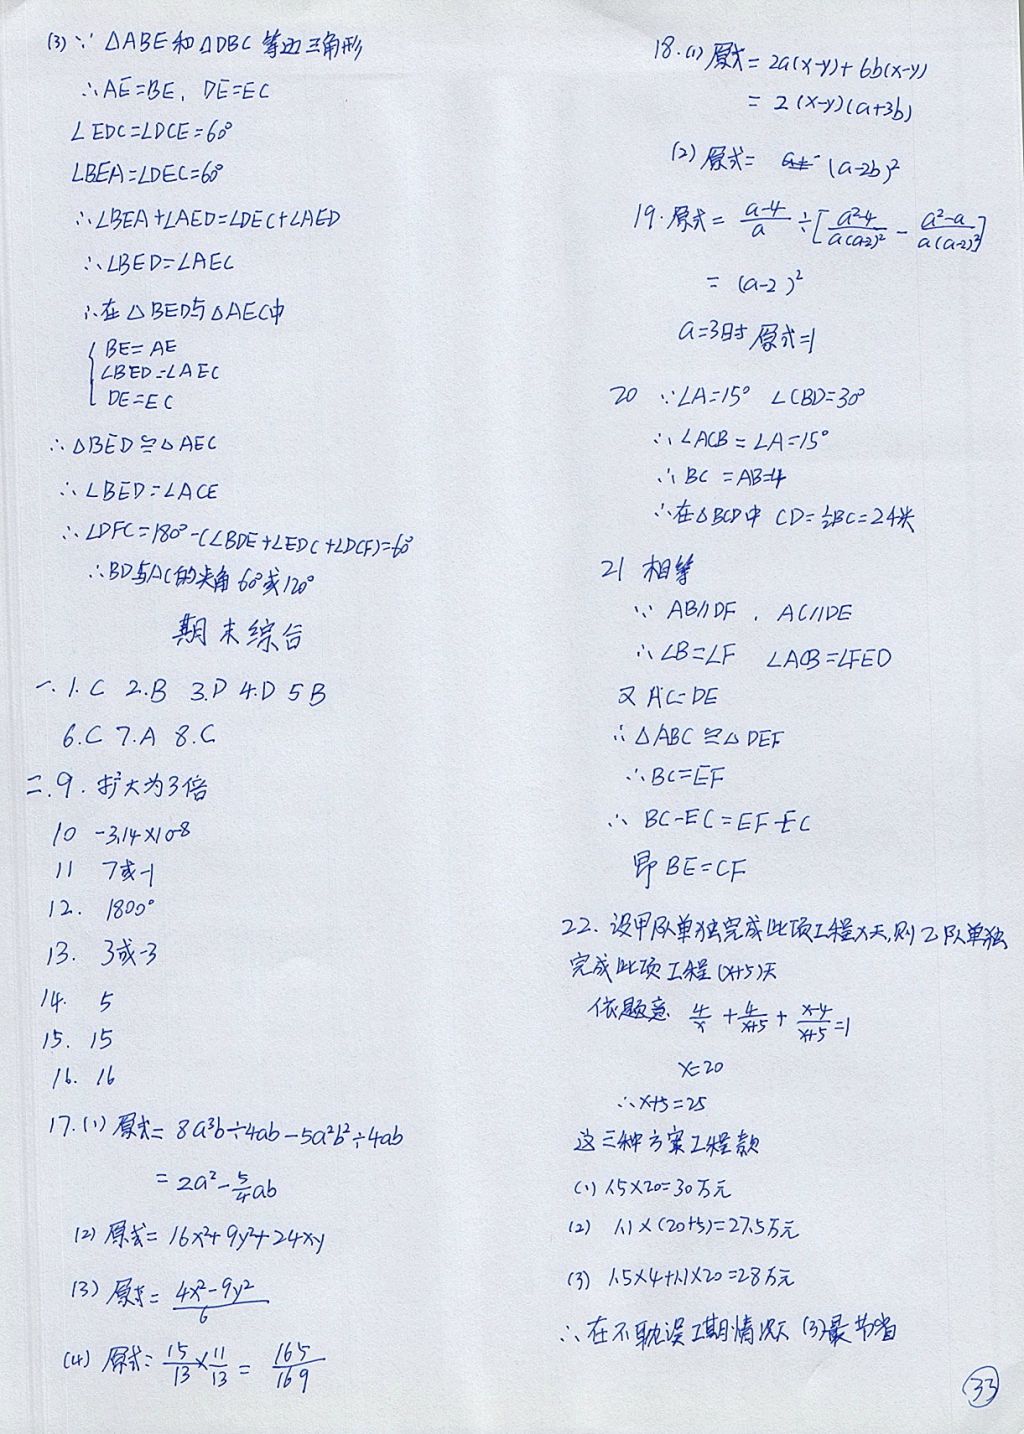 (3) ∵ △ABE和△DBC 等边三角形
∴AE=BE, DE=EC
∠EDC=∠DCE=60°
∠BEA=∠DEC=60°
∴∠BEA+∠AED=∠DEC+∠AED
∴∠BED=∠AEC
∴在△BED与△AEC中
BE=AE
∠BED=∠AEC
DE=EC
∴△BED≌△AEC
∴∠BED=∠ACE
∴∠DFC=180°-(∠BDE+∠EDC+∠DCF)=60°
∴BD与AC的夹角60°或120°
期末综合
一.1.C 2.B 3.D 4.D 5B
6.C 7.A 8.C
二.9.扩大为3倍
10 -3.14×10-8
11 7或-1
12. 1800°
13. 3或-3
14. 5
15. 15
16. 16
17.(1) 原式=8a³b÷4ab-5a²b²÷4ab
=2a²-5/4ab
(2) 原式=16x²+9y²+24xy
(3) 原式=(4x²-9y²)/6
(4) 原式=15/13×11/13=165/169
18.(1) 原式=2a(x-y)+6b(x-y)
=2(x-y)(a+3b)
(2) 原式=(a-2b)²
19.原式=(a-4)/a÷[(a²-4)/a(a-2)²-(a²-a)/a(a-2)²]
=(a-2)²
a=3时 原式=1
20 ∵∠A=15° ∠CBD=30°
∴∠ACB=∠A=15°
∴BC=AB=4
∴在△BCD中 CD=½BC=24米
21 相等
∵ AB//DF, AC//DE
∴∠B=∠F ∠ACB=∠FED
又AC=DE
∴△ABC≌△DEF
∴BC=EF
∴ BC-EC=EF-EC
即BE=CF
22.设甲队单独完成此项工程x天,则乙队单独
完成此项工程(x+5)天
依题意 4/x+4/(x+5)+(x-4)/(x+5)=1
x=20
∴x+5=25
这三种方案工程款
(1) 1.5×20=30万元
(2) 1.1×(20+5)=27.5万元
(3) 1.5×4+1.1×20=28万元
∴在不耽误工期情况下(3)最节省
33